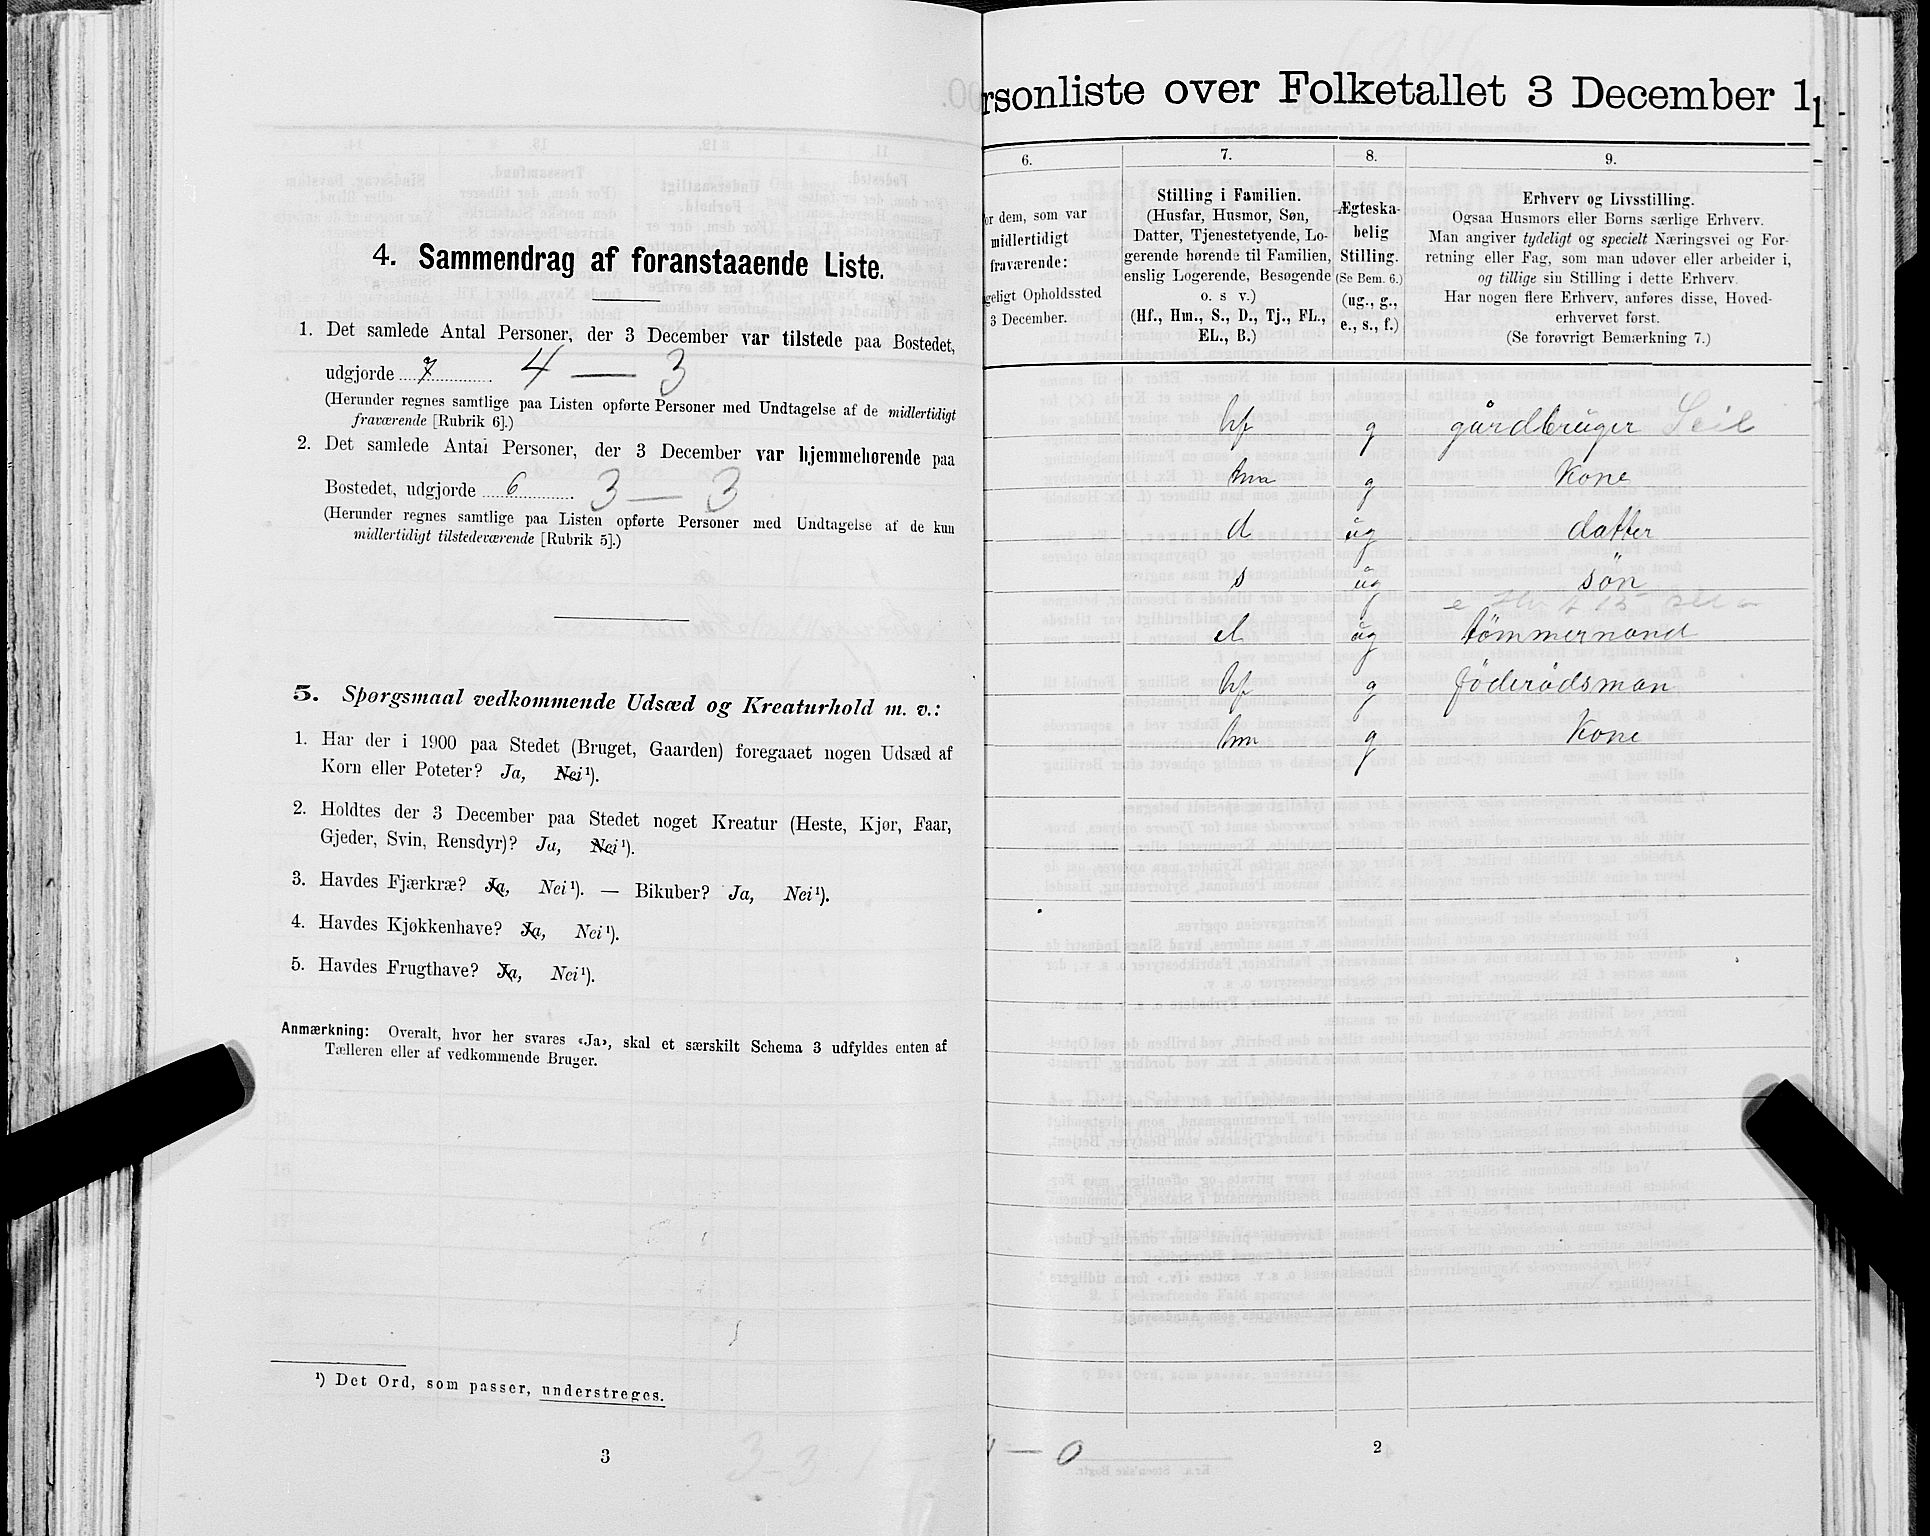 4. Sammendrag af foranstaaende Liste.
1. Det samlede Antal Personer, der 3 December var tilstede paa Bostedet,
udgjorde 7 4 — 3
(Herunder regnes samtlige paa Listen opførte Personer med Undtagelse af de midlertidigt
fraværende [Rubrik 6].)
2. Det samlede Antal Personer, der 3 December var hjemmehørende paa
Bostedet, udgjorde 6 3 — 3
(Herunder regnes samtlige paa Listen opførte Personer med Undtagelse af de kun
midlertidigt tilstedeværende [Rubrik 5].)
5. Spørgsmaal vedkommende Udsæd og Kreaturhold m. v.:
1. Har der i 1900 paa Stedet (Bruget, Gaarden) foregaaet nogen Udsæd af
Korn eller Poteter? Ja, Nei ¹).
2. Holdtes der 3 December paa Stedet noget Kreatur (Heste, Kjør, Faar,
Gjeder, Svin, Rensdyr)? Ja, Nei ¹).
3. Havdes Fjærkræ? Ja, Nei ¹). — Bikuber? Ja, Nei ¹).
4. Havdes Kjøkkenhave? Ja, Nei ¹).
5. Havdes Frugthave? Ja, Nei ¹).
Anmærkning: Overalt, hvor her svares «Ja», skal et særskilt Schema 3 udfyldes enten af
Tælleren eller af vedkommende Bruger.
¹) Det Ord, som passer, understreges.
3
3-3
rsonliste over Folketallet 3 December 1
6. 7. 8. 9.
or dem, som var
midlertidigt
fraværende:
geligt Opholdssted
3 December.
Stilling i Familien.
(Husfar, Husmor, Søn,
Datter, Tjenestetyende, Lo-
gerende hørende til Familien,
enslig Logerende, Besøgende
o. s v.)
(Hf., Hm., S., D., Tj., FL.,
EL., B.)
Ægteska-
belig
Stilling.
(Se Bem. 6.)
(ug., g.,
e., s., f.)
Erhverv og Livsstilling.
Ogsaa Husmors eller Børns særlige Erhverv.
Man angiver tydeligt og specielt Næringsvei og For-
retning eller Fag, som man udøver eller arbeider i,
og tillige sin Stilling i dette Erhverv.
Har nogen flere Erhverv, anføres disse, Hoved-
erhvervet først.
(Se forøvrigt Bemærkning 7.)
hf g gårdbruger Seil
hm g Kone
d ug datter
s ug søn
el ug tømmermand
hf g föderådsman
hm g Kone
— 0
2